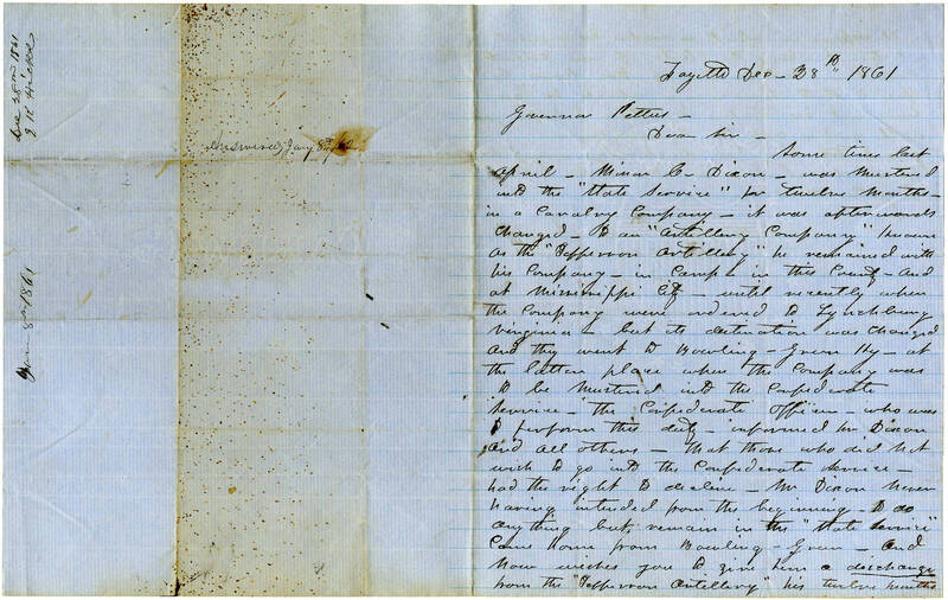 Dec 28th 1861
Answered Jany 8th /62
Fayette Dec - 28th 1861
Governor Pettus -
Dear Sir -
Some time last
April - Minor C. Dixon - was Mustered
into the "State Service" for twelve Months -
in a Cavalry Company - it was afterwards
Changed - to an "Artillery Company" known
as the "Jefferson Artillery" he remained with
his Company - in Camp in this County - And
at Mississippi City - until recently when
the Company were ordered to Lynchburg
Virginia - but its destination was Changed
And they went to Bowling - Green Ky - at
the latter place when the Company was
to be Mustered into the Confederate
Service - the Confederate Officer - who was
to perform this duty - informed Mr Dixon
And all others - that those who did not
wish to go into the Confederate Service -
had the right to decline - Mr Dixon Never
having intended from the beginning - to do
anything but remain in the "State Service"
Came home from Bowling - Green - And
Now wishes you to give him a discharge
from the "Jefferson Artillery" his twelve Months